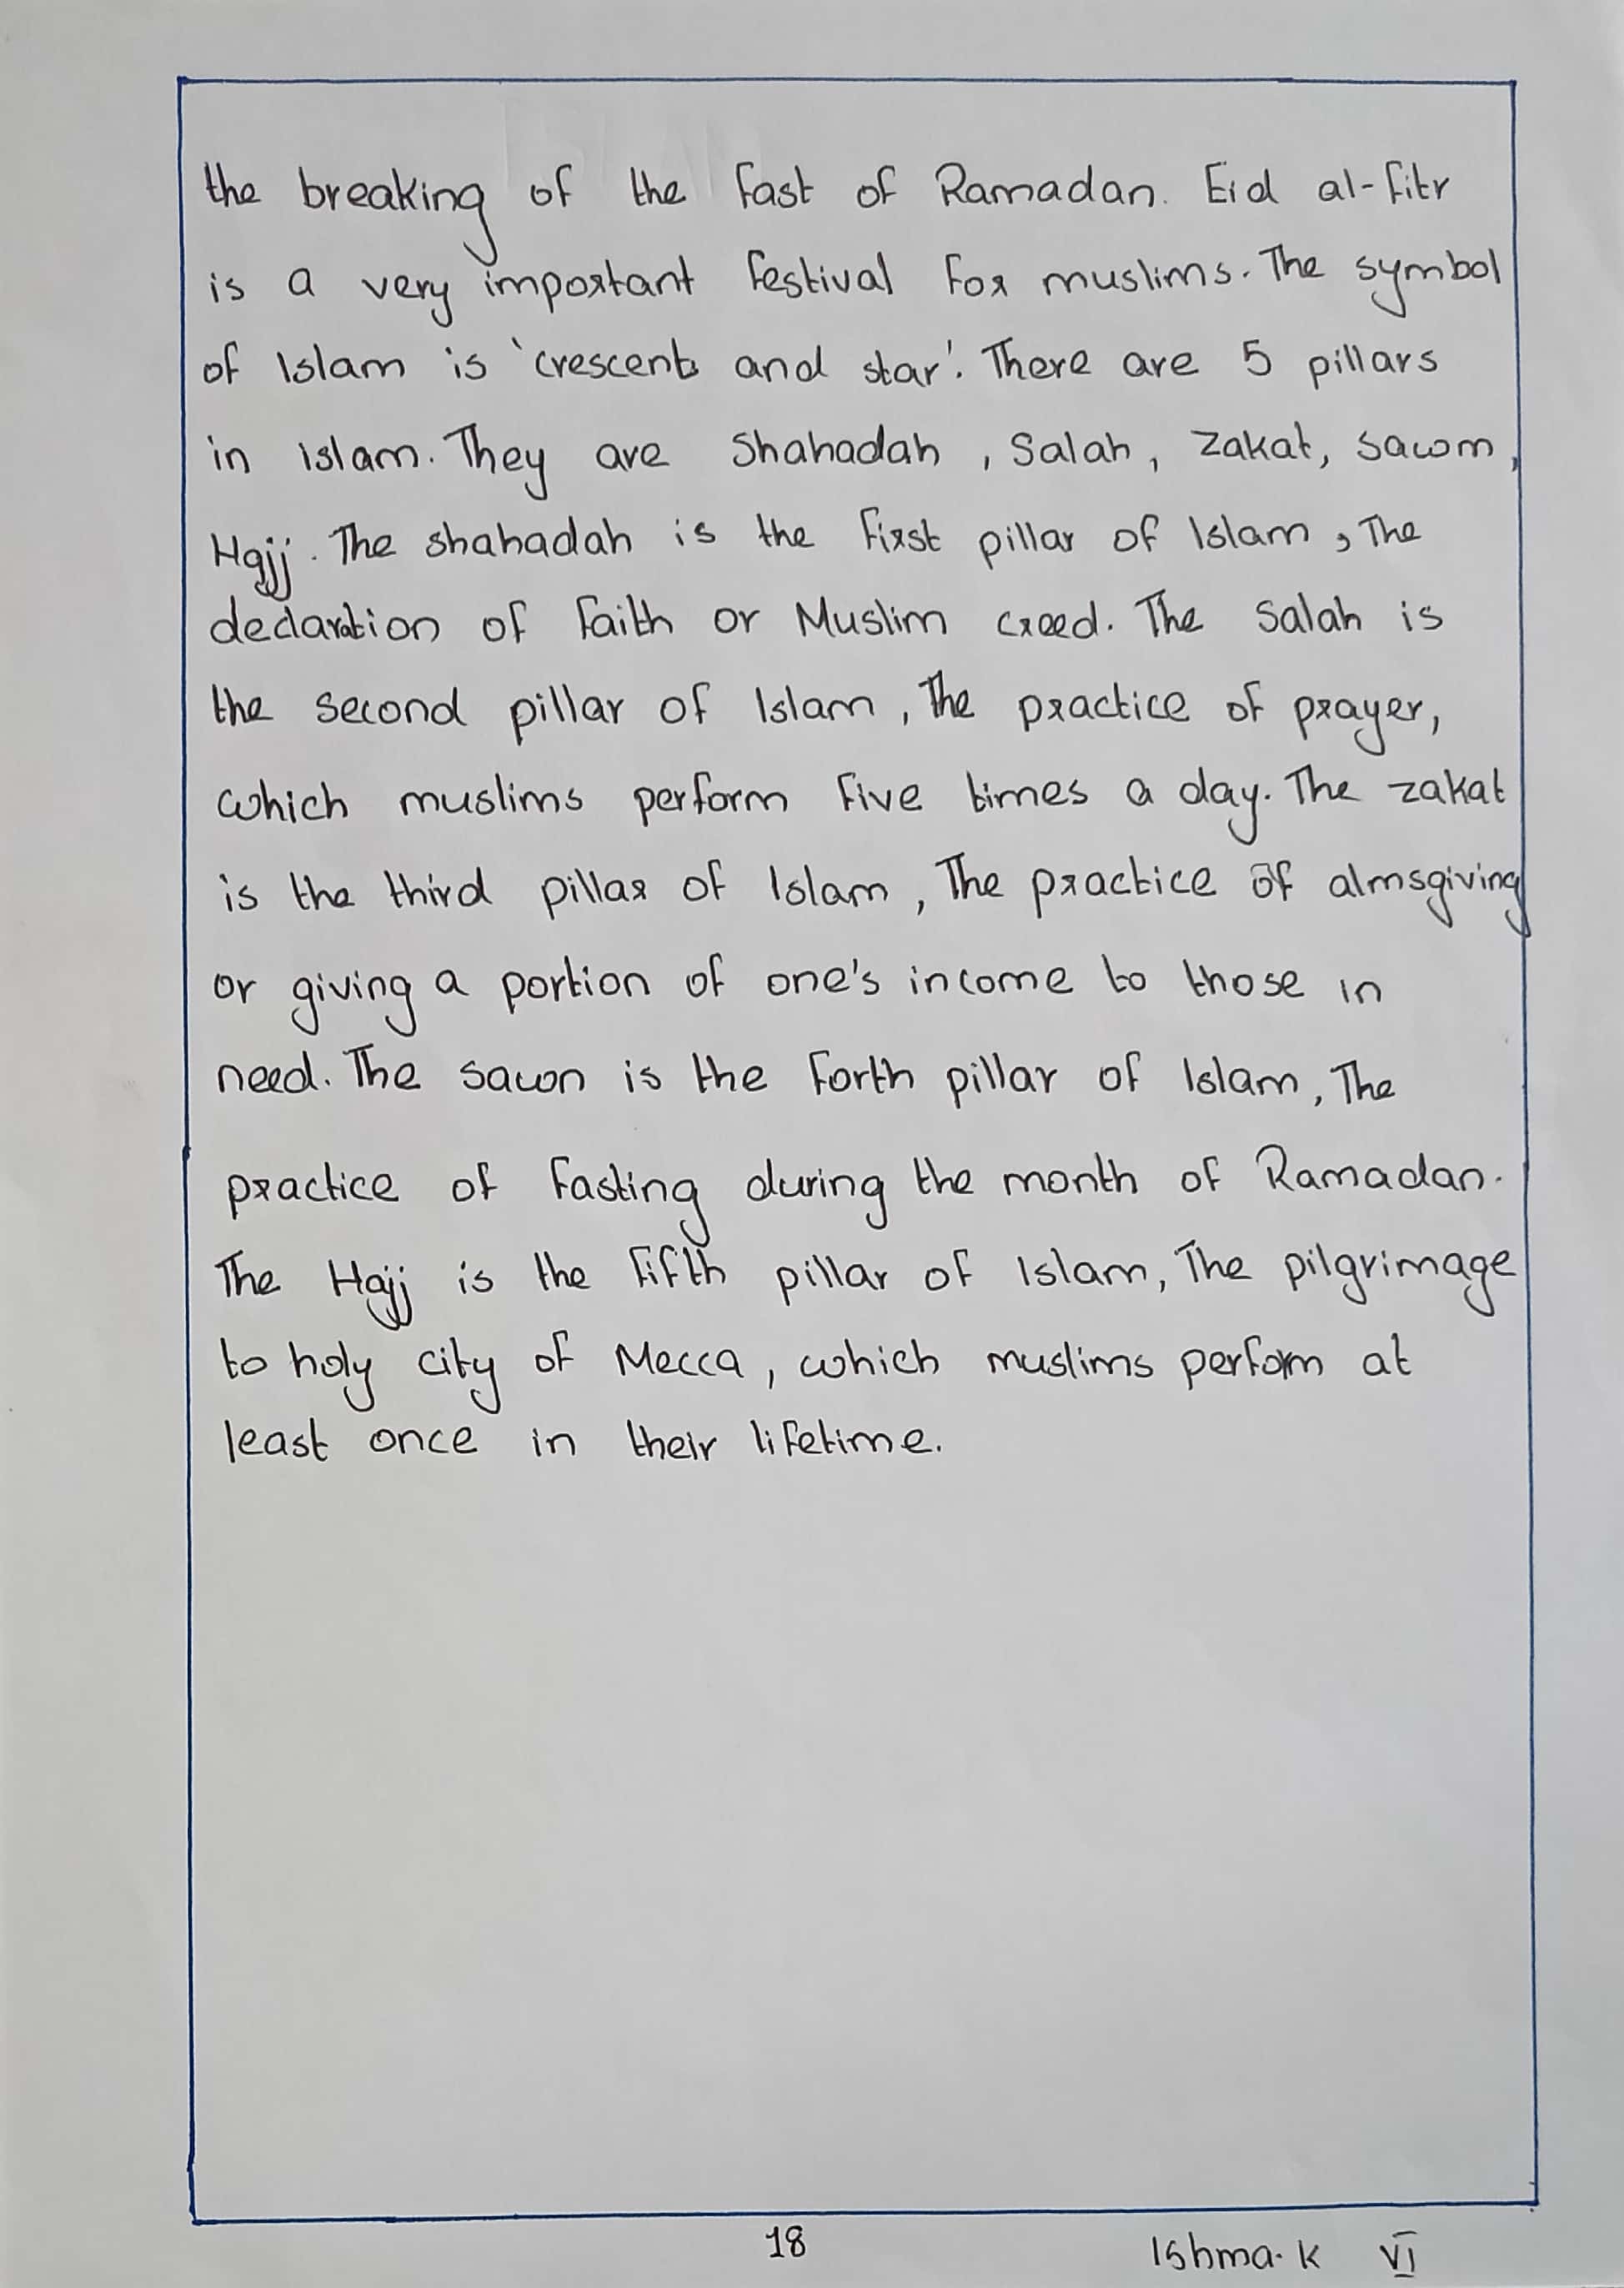 the breaking of the fast of Ramadan. Eid al-fitr
is a very important festival for muslims. The symbol
of Islam is 'crescent and star'. There are 5 pillars
in islam. They are Shahadah, Salah, Zakat, Sawm,
Hajj. The shahadah is the first pillar of Islam, The
declaration of faith or Muslim creed. The Salah is
the second pillar of Islam, The practice of prayer,
which muslims perform five times a day. The zakat
is the third pillar of Islam, The practice of almsgiving
or giving a portion of one's income to those in
need. The sawn is the forth pillar of Islam, The
practice of fasting during the month of Ramadan.
The Hajj is the fifth pillar of Islam, The pilgrimage
to holy city of Mecca, which muslims perform at
least once in their lifetime.
18
Ishma. K VI